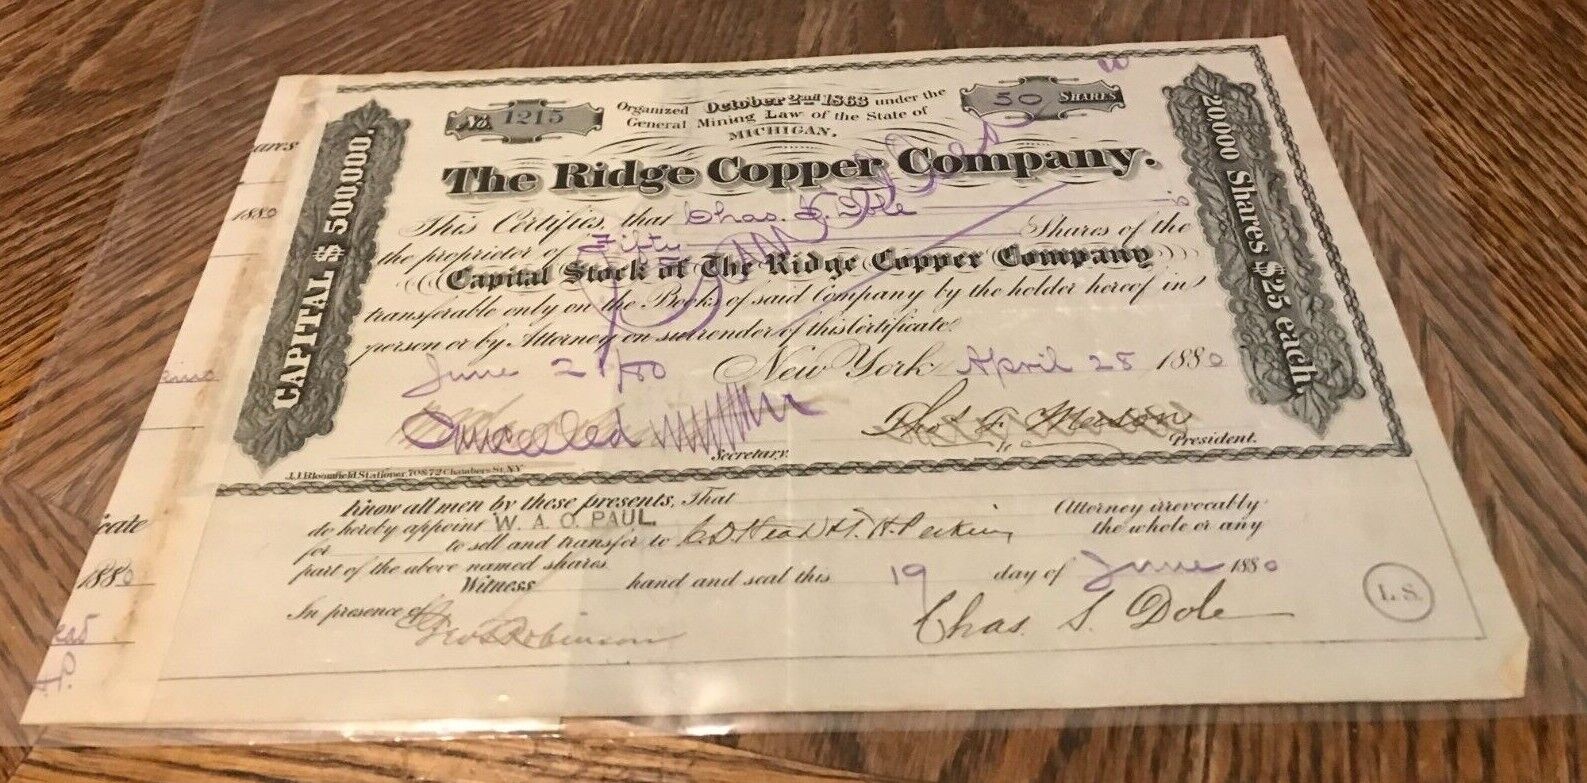 No. 1215
Organized October 2nd 1863 under the
General Mining Law of the State of
MICHIGAN.
50 SHARES
The Ridge Copper Company.
CAPITAL $ 500,000.
20,000 Shares $25 each.
This Certifies, that Chas. S. Dole is
the proprietor of Fifty Shares of the
Capital Stock of The Ridge Copper Company
transferable only on the Books of said Company by the holder hereof in
person or by Attorney on surrender of this Certificate.
Cancelled
June 21/80 New York April 28 1880
Cancelled
Secretary. President.
Thos F. Mason
J.J. Bloomfield Stationer, 70&72 Chambers St. N.Y.
Know all men by these presents, That
do hereby appoint W. A. O. PAUL. Attorney irrevocably
for to sell and transfer to C.D. Head & T. H. Perkins the whole or any
part of the above named shares.
Witness hand and seal this 19 day of June 1880
In presence of
Geo Robinson
Chas. S. Dole
L. S.
ares
1880
cate
1880